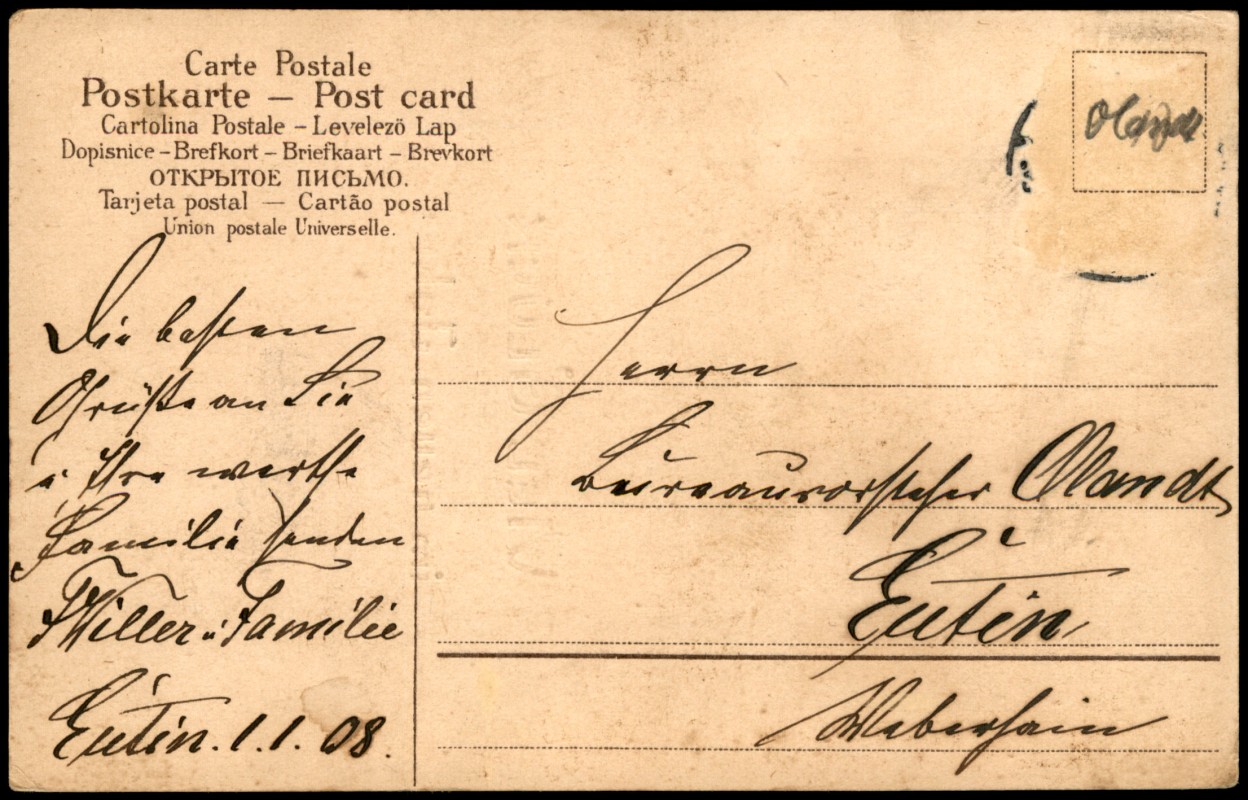 Carte Postale
Postkarte – Post card
Cartolina Postale – Levelező Lap
Dopisnice – Brefkort – Briefkaart – Brevkort
ОТКРЫТОЕ ПИСЬМО.
Tarjeta postal — Cartão postal
Union postale Universelle.
Olandt
Die besten
Grüße an Sie
u Ihre werthe
Familie senden
Willer u. Familie
Eutin. 1.1.08.
Herrn
Bureauvorsteher Olandt
Eutin
Weberhain